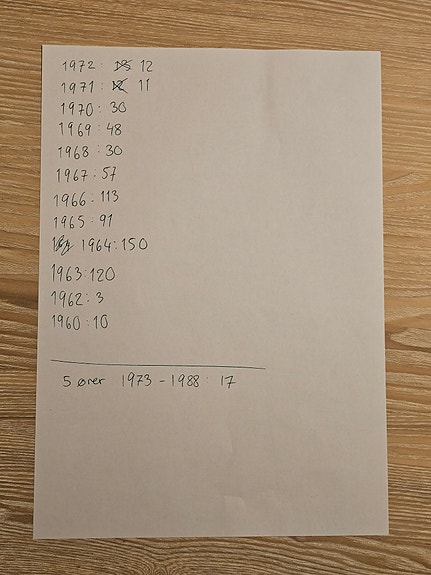 1972: 12
1971: 11
1970: 30
1969: 48
1968: 30
1967: 57
1966: 113
1965: 91
1964: 150
1963: 120
1962: 3
1960: 10
5 ører 1973 - 1988: 17